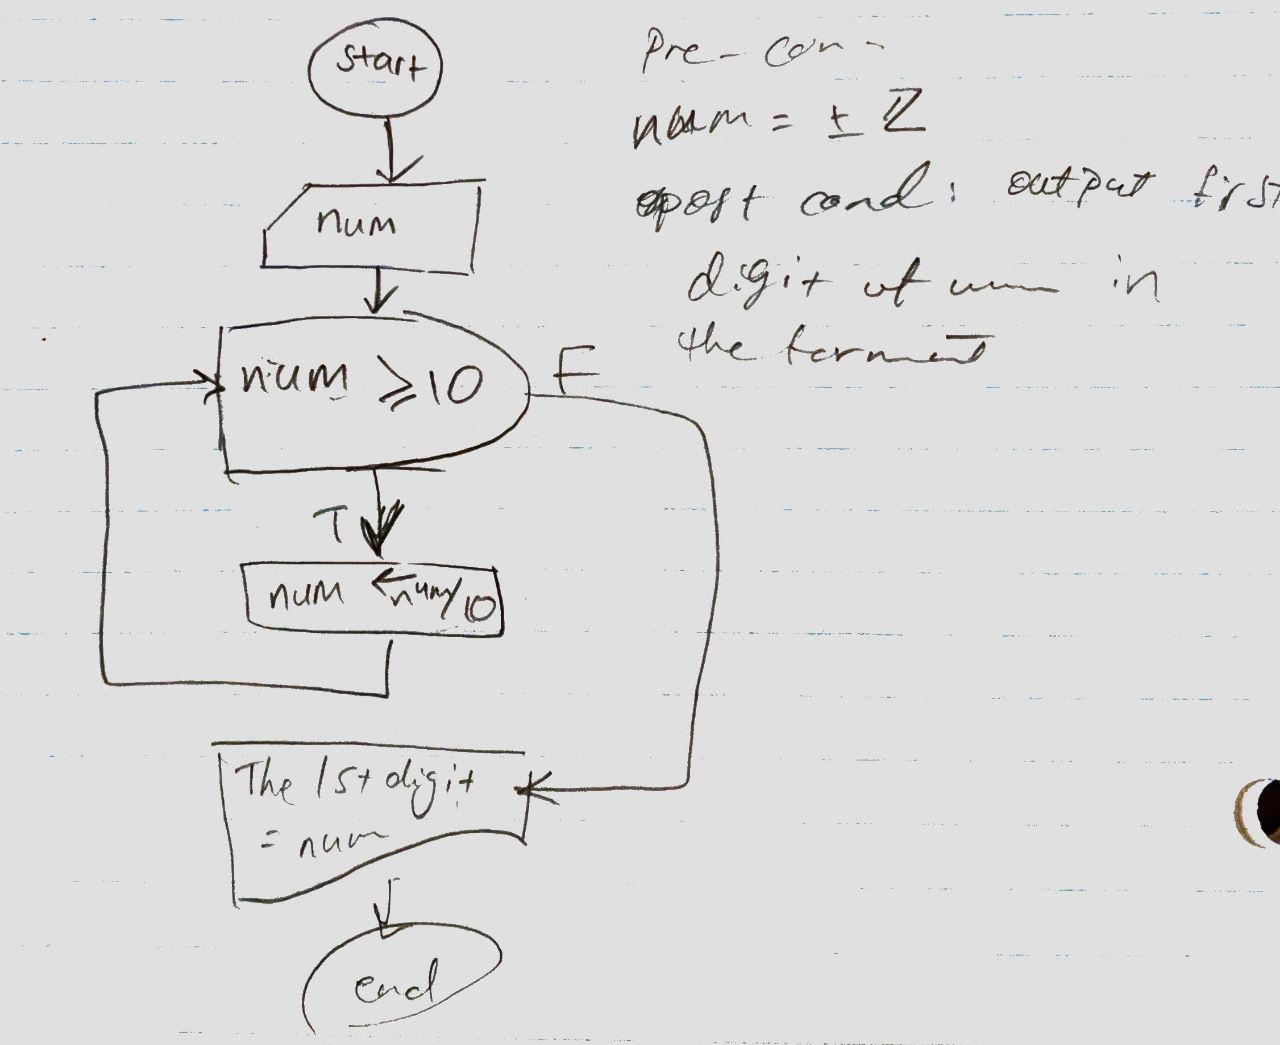 start
num
num ≥ 10
F
T
num ← num/10
The 1st digit
= num
end
Pre-con-
num = ± ℤ
post cond: output first
digit of num in
the